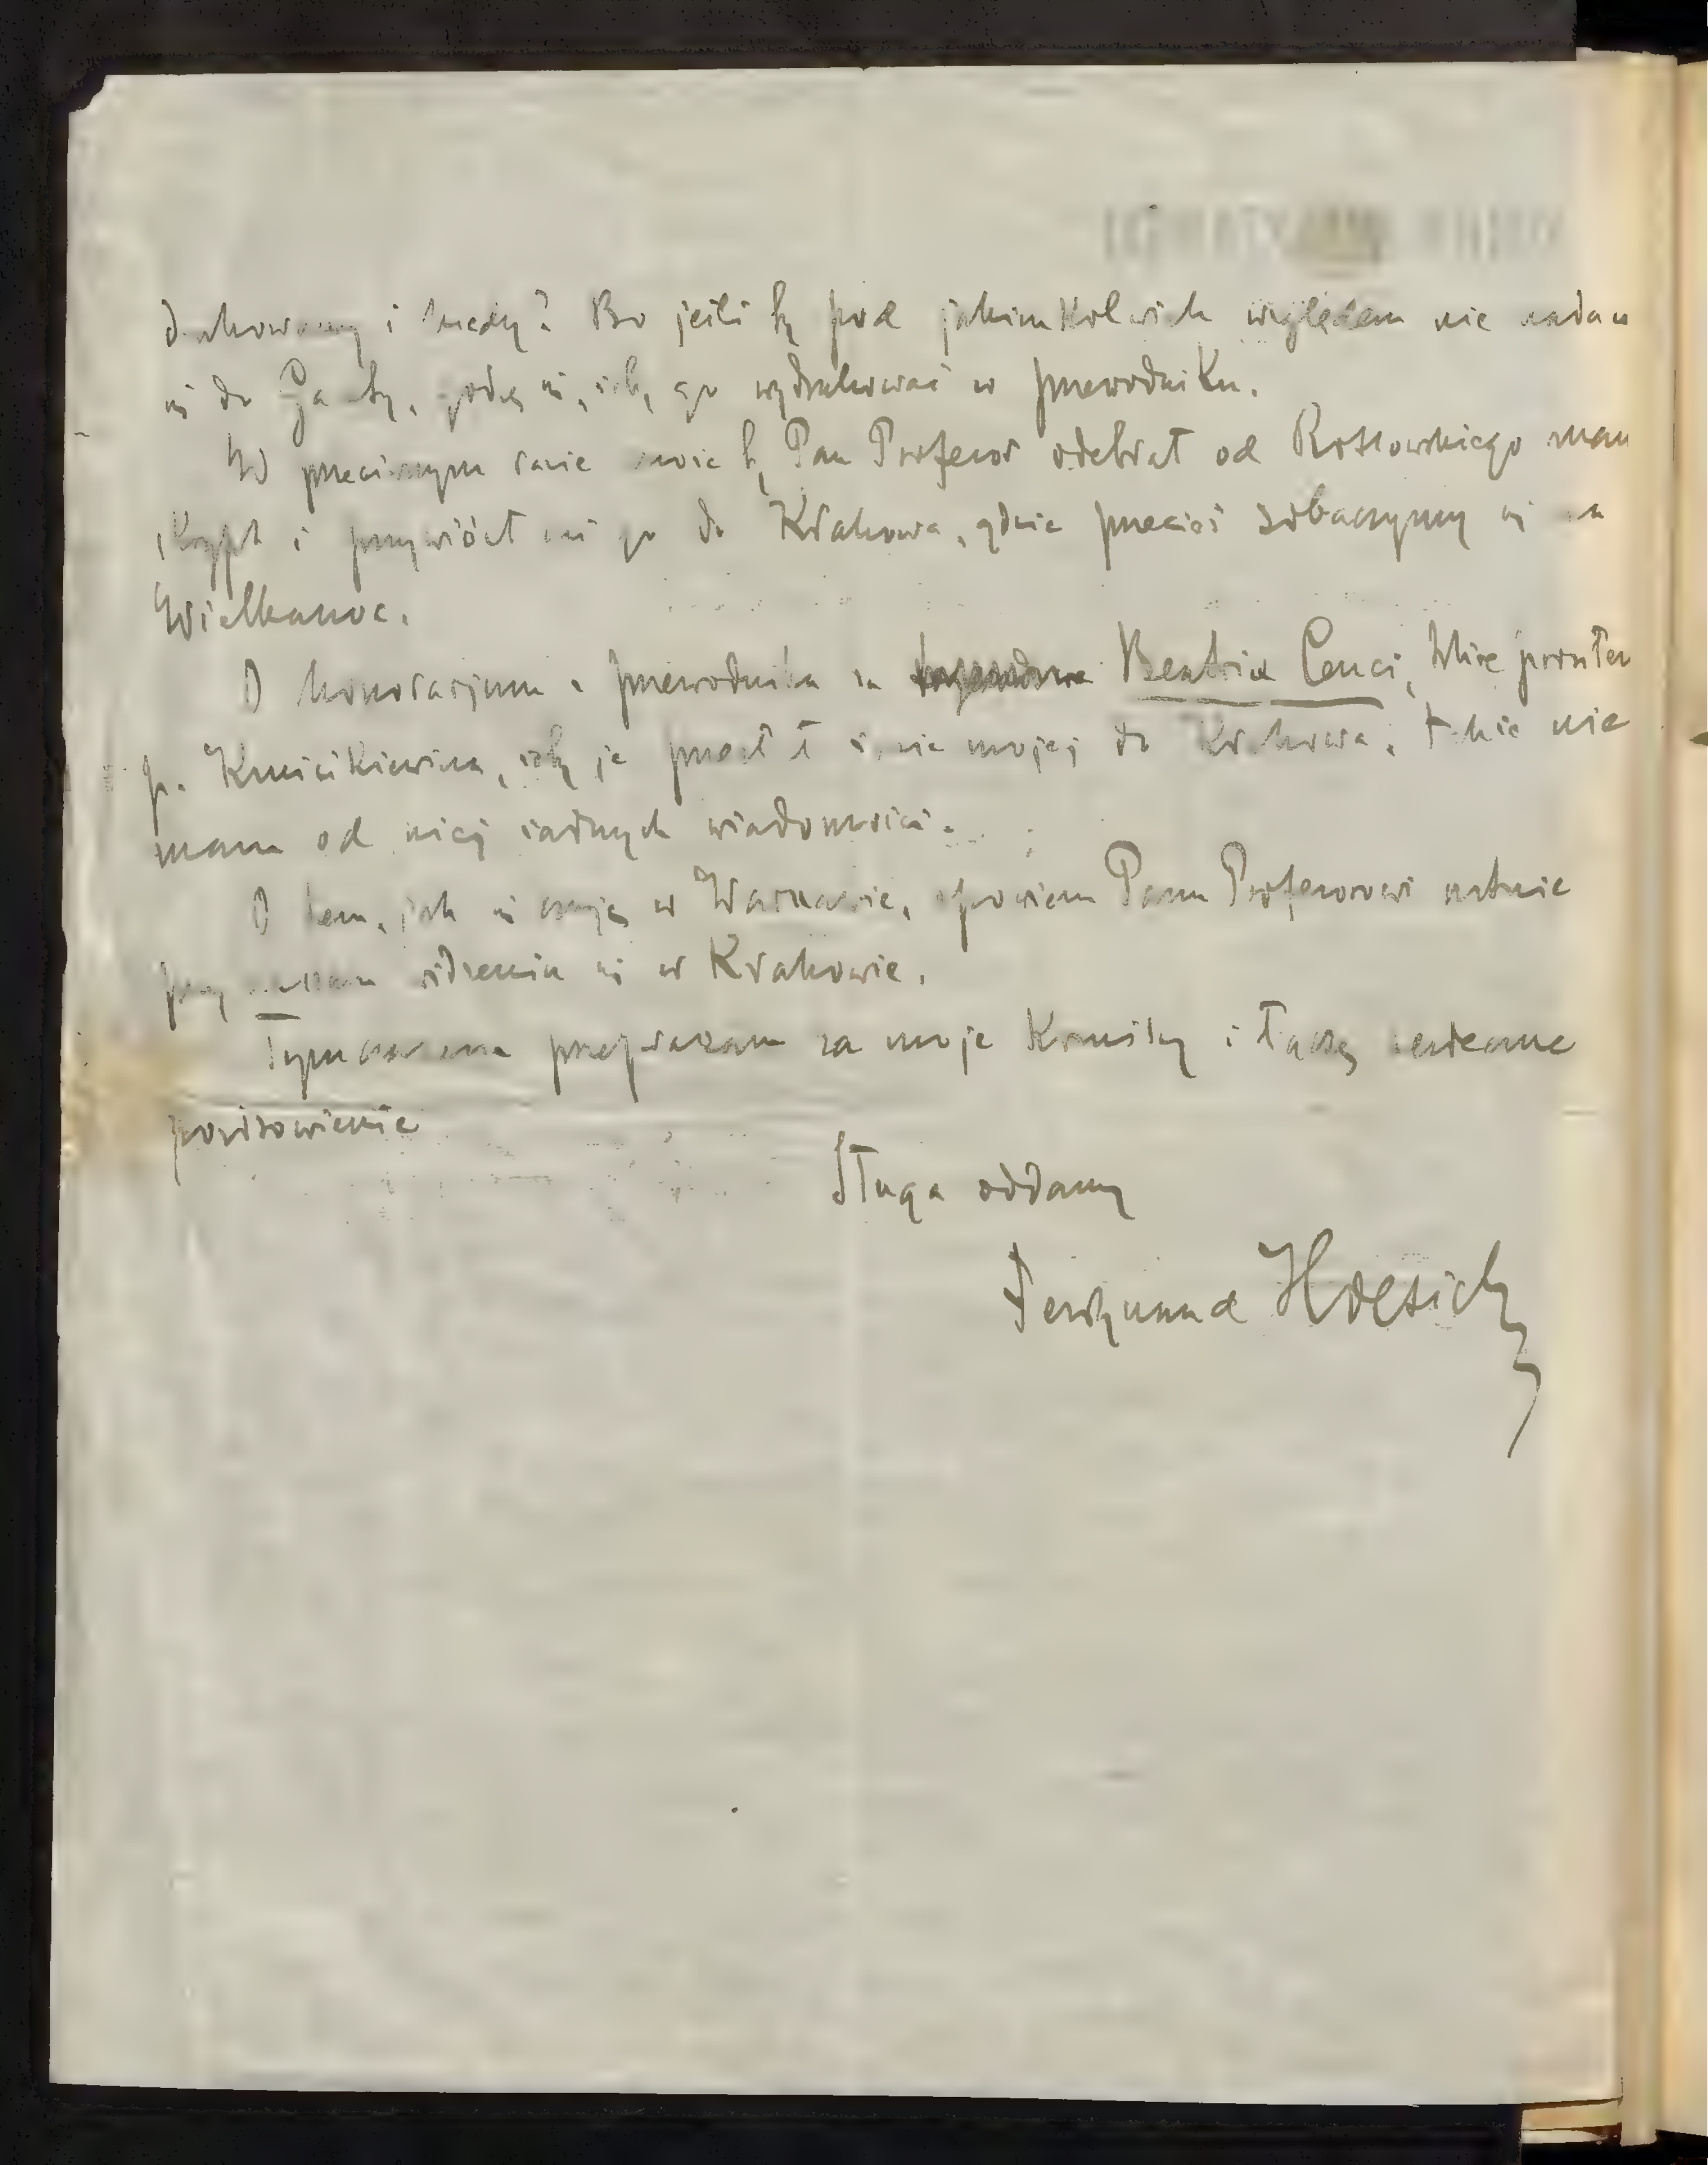 drukowany i kiedy? Bo jeśli by pod jakimkolwiek względem nie nadaw
się do Gazety, godzę się, żeby go wydrukować w przewodniku.
W przeciwnym razie może by Pan Profesor odebrał od Rossowskiego manu
skrypt i przywiózł mi go do Krakowa, gdzie przecież zobaczymy się na
Wielkanoc.
O honorarjum z przewodnika za Beatrix Cenci, które prosiłem
p. Kruczkiewicza, żeby je przesłał żonie mojej do Krakowa, także nie
mam od niej żadnych wiadomości.
O tem, jak się czuję w Warszawie, opowiem Panu Profesorowi ustnie
przy widzeniu się w Krakowie.
Tymczasem przepraszam za moje i łączę serdeczne
pozdrowienie
Sługa oddany
Ferdynand Hoesick